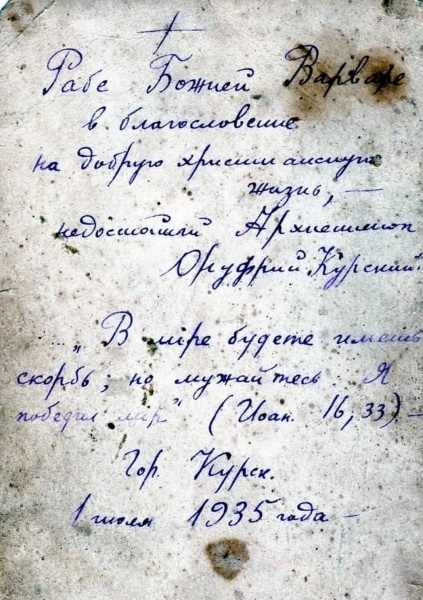 Рабе Божией Варваре
в благословение
на добрую христианскую
жизнь, —
недостойный Архиепископ
Онуфрий Курский.
... „В міре будете иметь
скорбь; но мужайтесь Я
победил мір" (Иоан. 16, 33) —
Гор. Курск.
1 июля 1935 года —